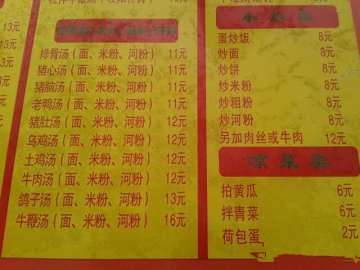 13元
13元
排骨汤（面、米粉、河粉） 11元
猪心汤（面、米粉、河粉） 11元
猪脑汤（面、米粉、河粉） 11元
老鸭汤（面、米粉、河粉） 11元
猪肚汤（面、米粉、河粉） 12元
乌鸡汤（面、米粉、河粉） 12元
土鸡汤（面、米粉、河粉） 12元
牛肉汤（面、米粉、河粉） 12元
鸽子汤（面、米粉、河粉） 13元
牛鞭汤（面、米粉、河粉） 16元
蛋炒饭 8元
炒面 8元
炒饼 8元
炒米粉 8元
炒粗粉 8元
炒河粉 8元
另加肉丝或牛肉 12元
凉菜类
拍黄瓜 6元
拌青菜 6元
荷包蛋 2元